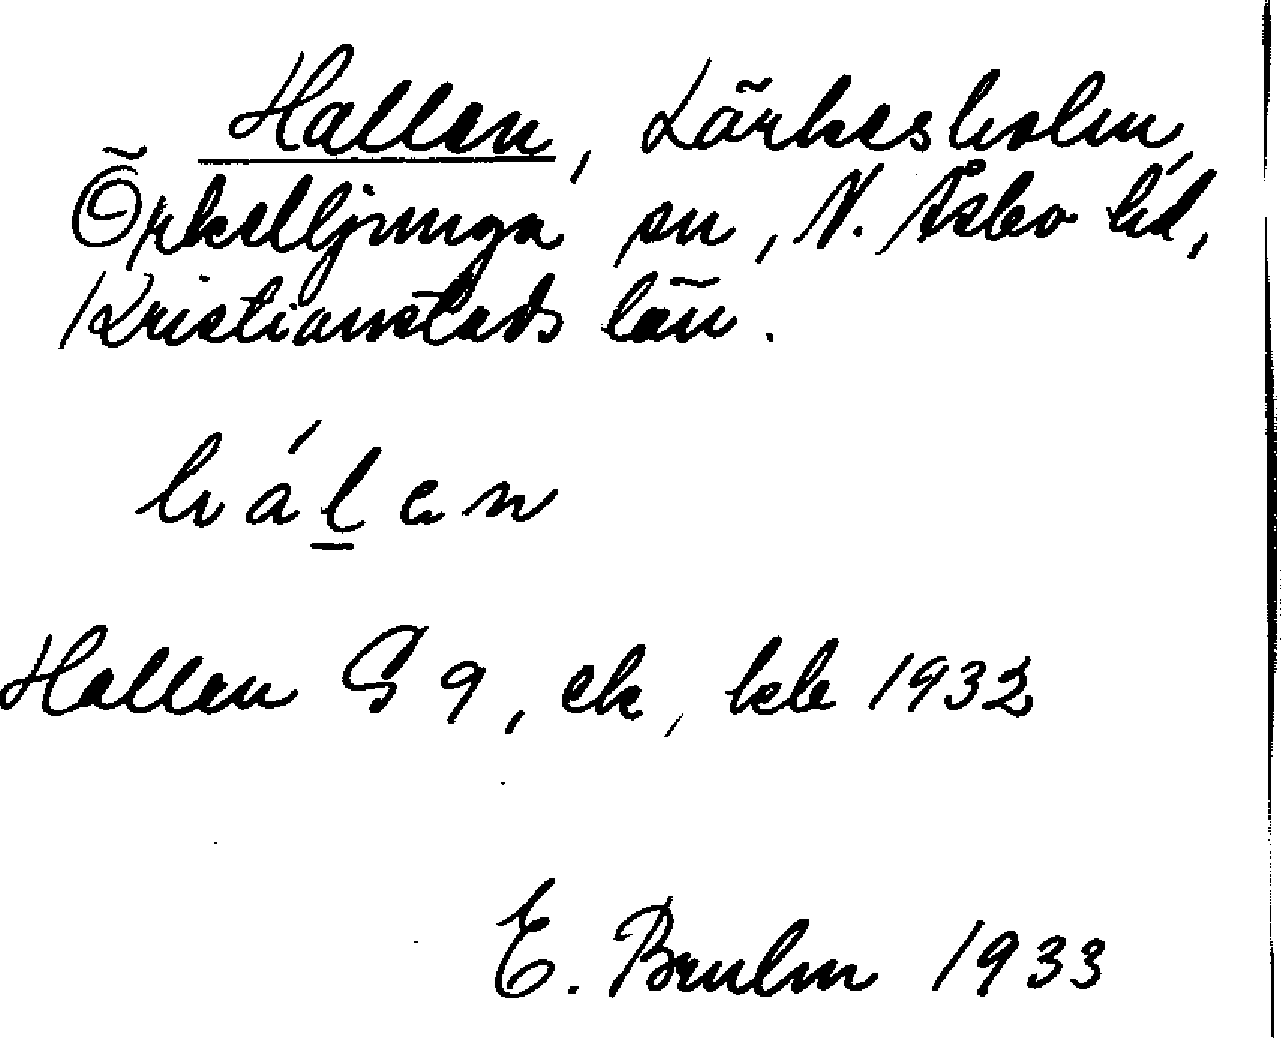 Hallen, Lärkesholm,
Örkelljunga sn, N. Åsbo hd,
Kristianstads län.
hálen
Hallen S 9, ek, kbl 1932
E. Bruhn 1933